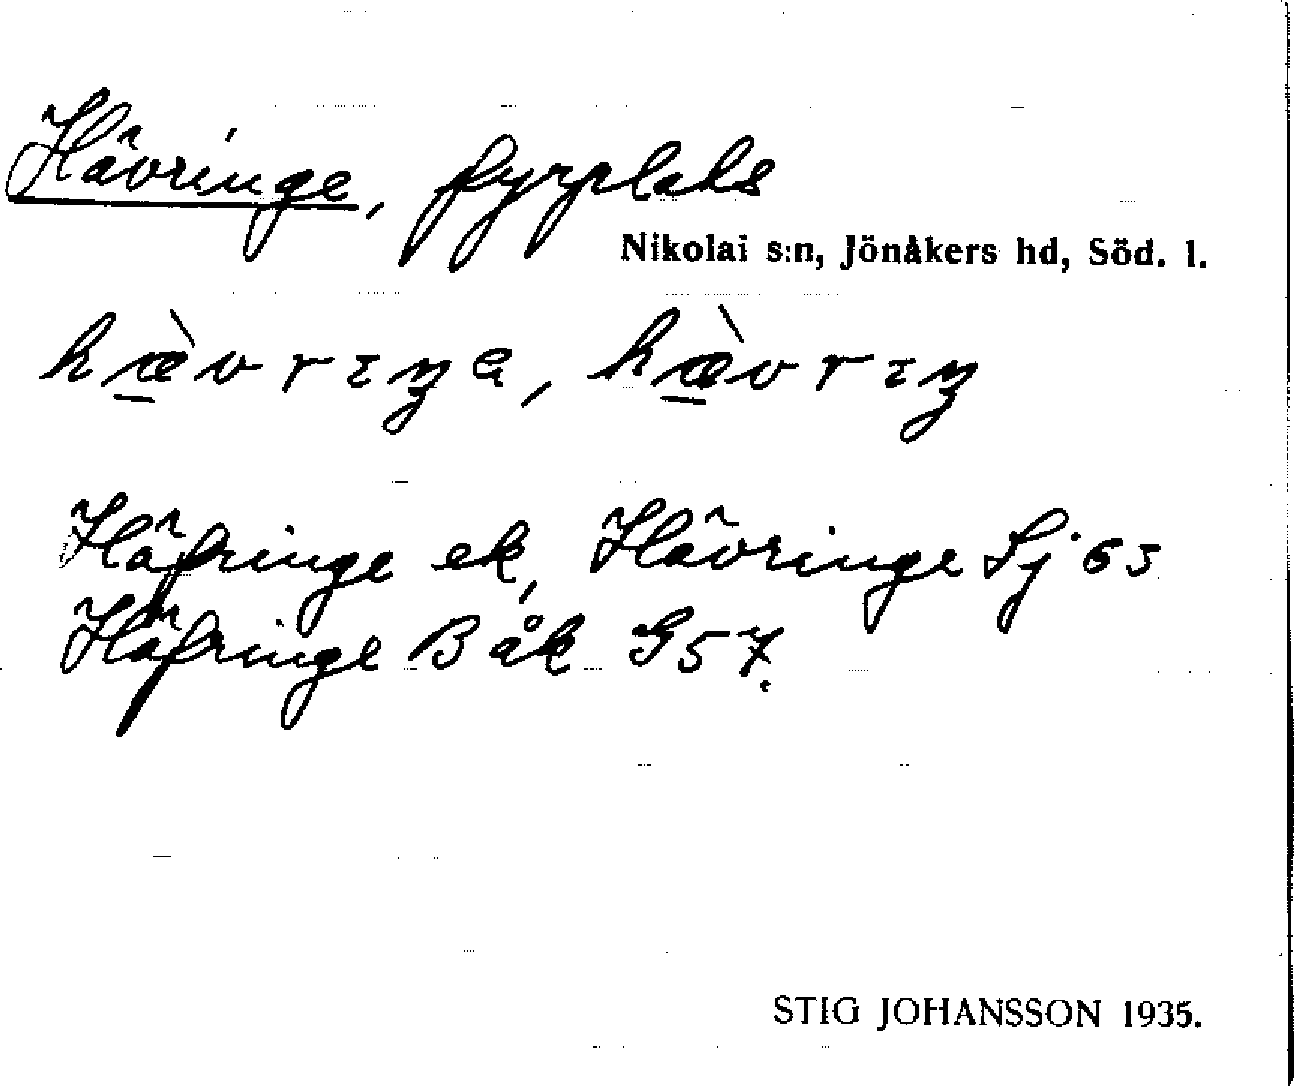 Hävringe, fyrplats
Nikolai s:n, Jönåkers hd, Söd. l.
hæ̀vrıŋa, hæ̀vrıŋ
Häfringe ek, Hävringe Sj 65
Häfringe Båk G 57.
STIG JOHANSSON 1935.